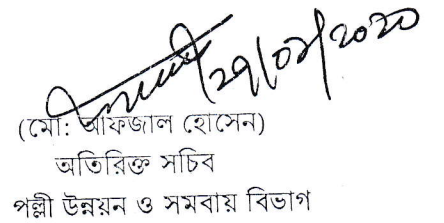 (মো: আফজাল হোসেন)
অতিরিক্ত সচিব
পল্লী উন্নয়ন ও সমবায় বিভাগ